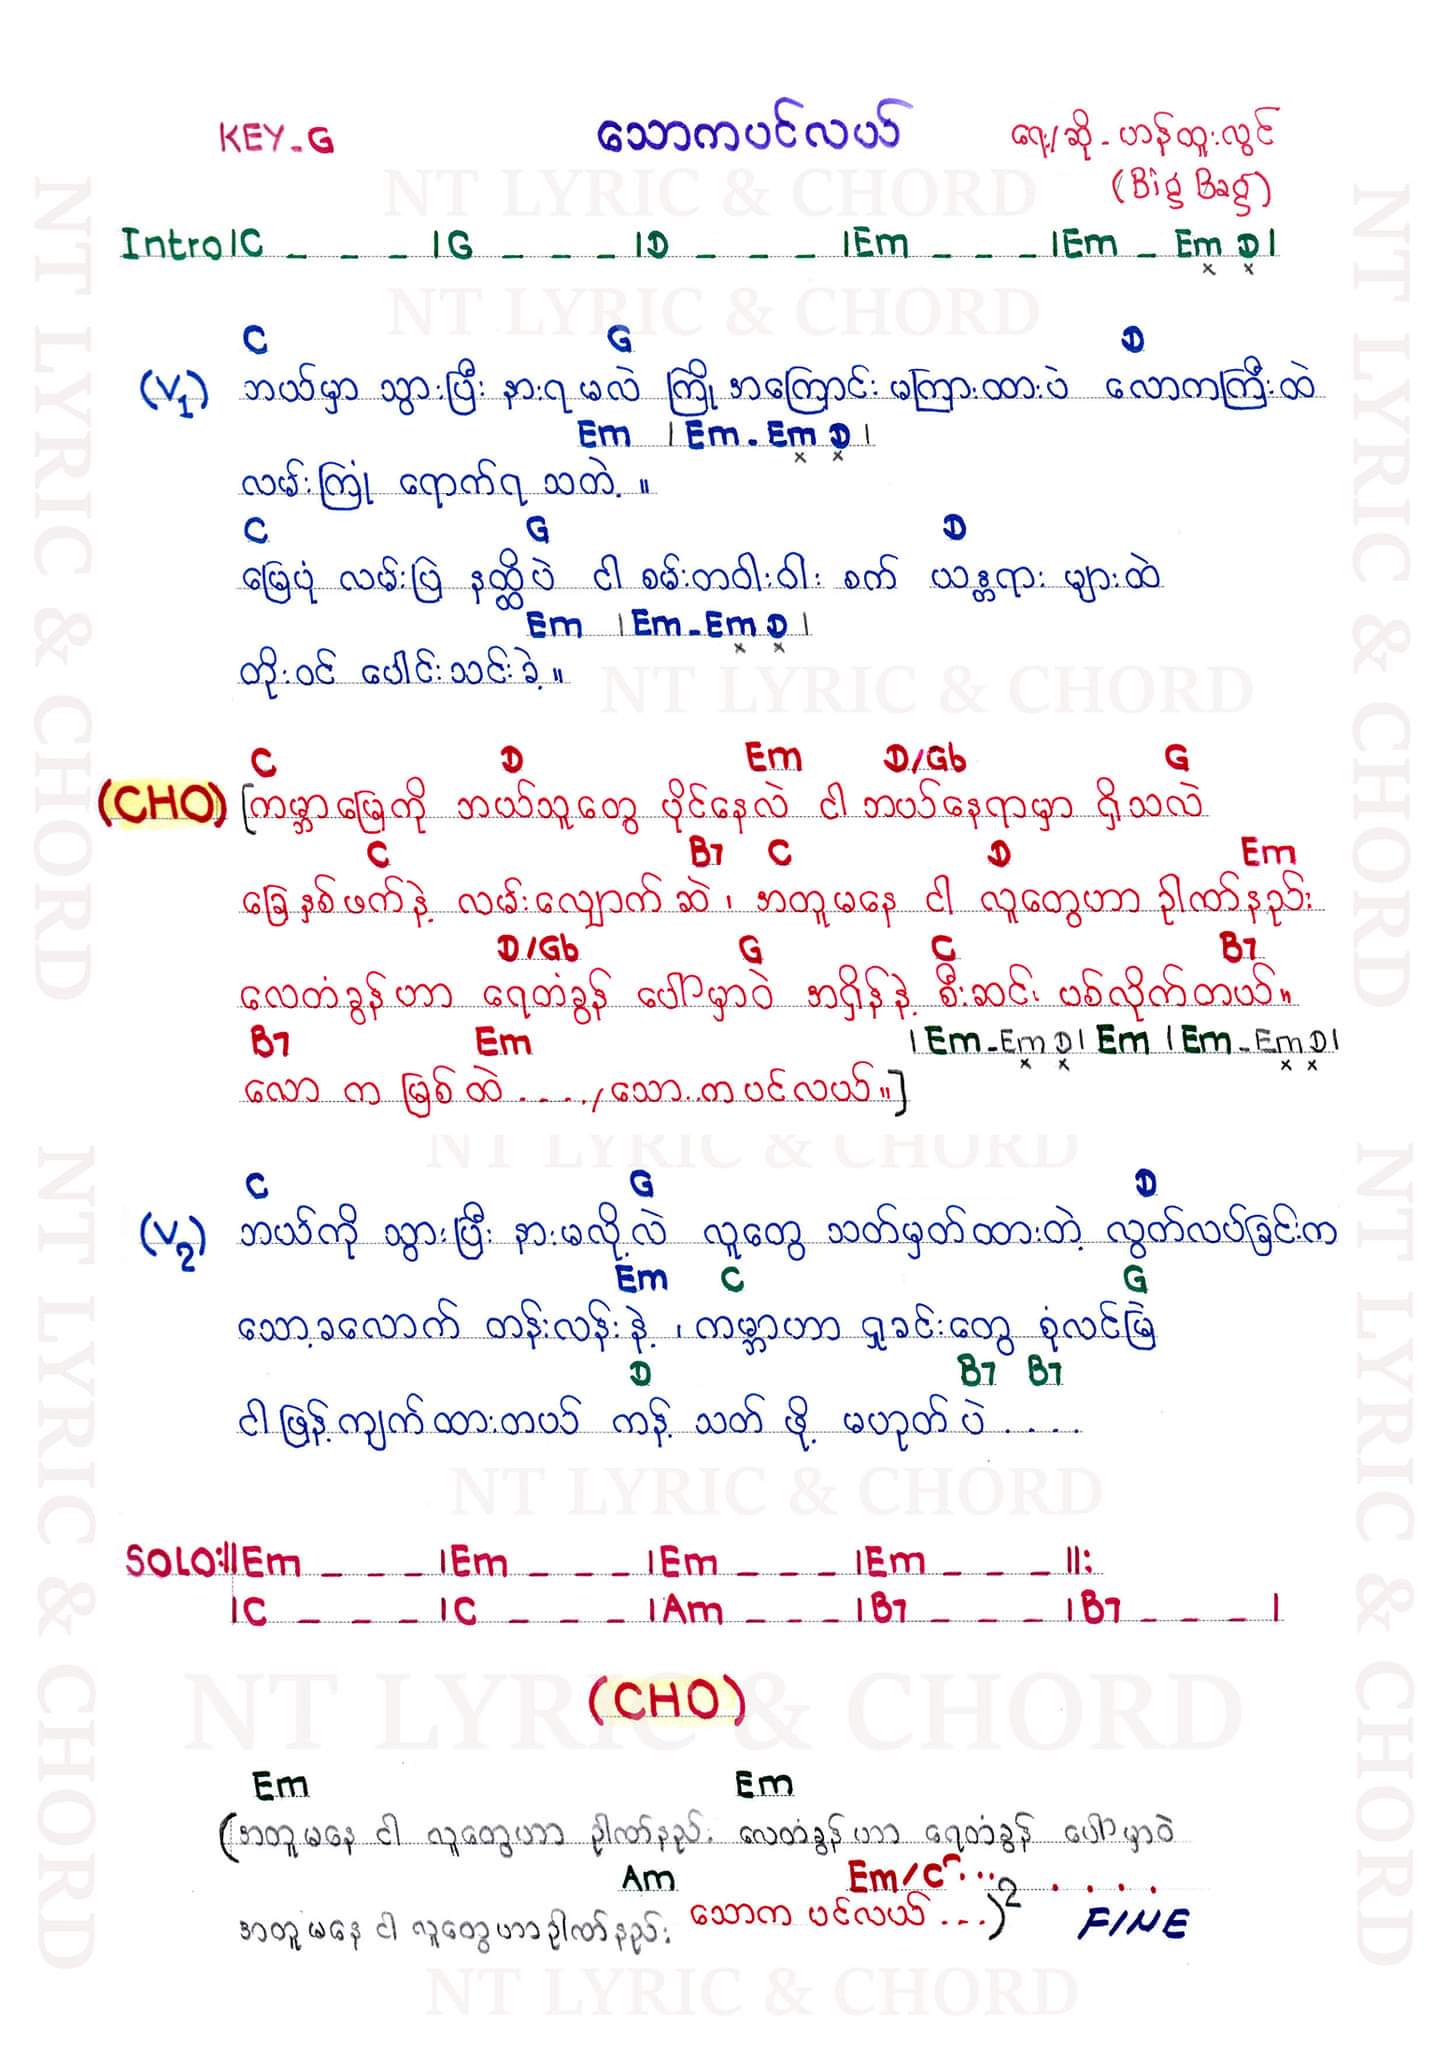 KEY-G သောကပင်လယ် ရေး/ဆို - ဟန်ထူးလွင်
(Big Bag)
NT LYRIC & CHORD
Intro|C _ _ _ |G _ _ _ |D _ _ _ |Em _ _ _ |Em _ Em D|
x x
NT LYRIC & CHORD
C G D
(V1) ဘယ်မှာ သွားပြီး နားရ မလဲ ကြို အကြောင်း မကြားထားပဲ လောကကြီးထဲ
Em |Em - Em D|
x x
လမ်းကြုံ ရောက်ရ သတဲ့ ။
C G D
မြေပုံ လမ်းပြ နတ္ထိပဲ ငါ စမ်းတဝါးဝါး စက် ယန္တရား များထဲ
Em |Em - Em D|
x x
တိုးဝင် ပေါင်းသင်းခဲ့ ။
NT LYRIC & CHORD
C D Em D/Gb G
(CHO) [ကမ္ဘာမြေကို ဘယ်သူတွေ ပိုင်နေလဲ ငါ ဘယ်နေရာမှာ ရှိသလဲ
C B7 C D Em
ခြေနှစ်ဖက်နဲ့ လမ်းလျှောက်ဆဲ ၊ အတူမနေ ငါ လူတွေဟာ ဉာဏ်နည်း
D/Gb G C B7
လေတံခွန်ဟာ ရေတံခွန် ပေါ်မှာဝဲ အရှိန်နဲ့ စီးဆင်း ပစ်လိုက်တယ်။
B7 Em |Em - Em D| Em |Em - Em D|
x x x x
လော က မြစ် ထဲ . . . . / သော..ကပင်လယ်။]
NT LYRIC & CHORD
C G D
(V2) ဘယ်ကို သွားပြီး နားမလို့လဲ လူတွေ သတ်မှတ်ထားတဲ့ လွတ်လပ်ခြင်းက
Em C G
သော့ခလောက် တန်းလန်းနဲ့ ၊ ကမ္ဘာဟာ ရှုခင်းတွေ စုံလင်မြဲ
D B7 B7
ငါဖြန့်ကျက်ထားတယ် ကန့် သတ် ဖို့ မဟုတ်ပဲ . . . .
NT LYRIC & CHORD
SOLO:||Em _ _ _ |Em _ _ _ |Em _ _ _ |Em _ _ _ ||:
|C _ _ _ |C _ _ _ |Am _ _ _ |B7 _ _ _ |B7 _ _ _ |
NT LYRIC & CHORD
(CHO)
Em Em
(အတူမနေ ငါ လူတွေဟာ ဉာဏ်နည်း လေတံခွန်ဟာ ရေတံခွန် ပေါ်မှာဝဲ
Am Em/C ... . . . .
အတူမနေ ငါ လူတွေဟာဉာဏ်နည်း သောက ပင်လယ် . . .)2 FINE
NT LYRIC & CHORD
NT LYRIC & CHORD
NT LYRIC & CHORD
NT LYRIC & CHORD
NT LYRIC & CHORD